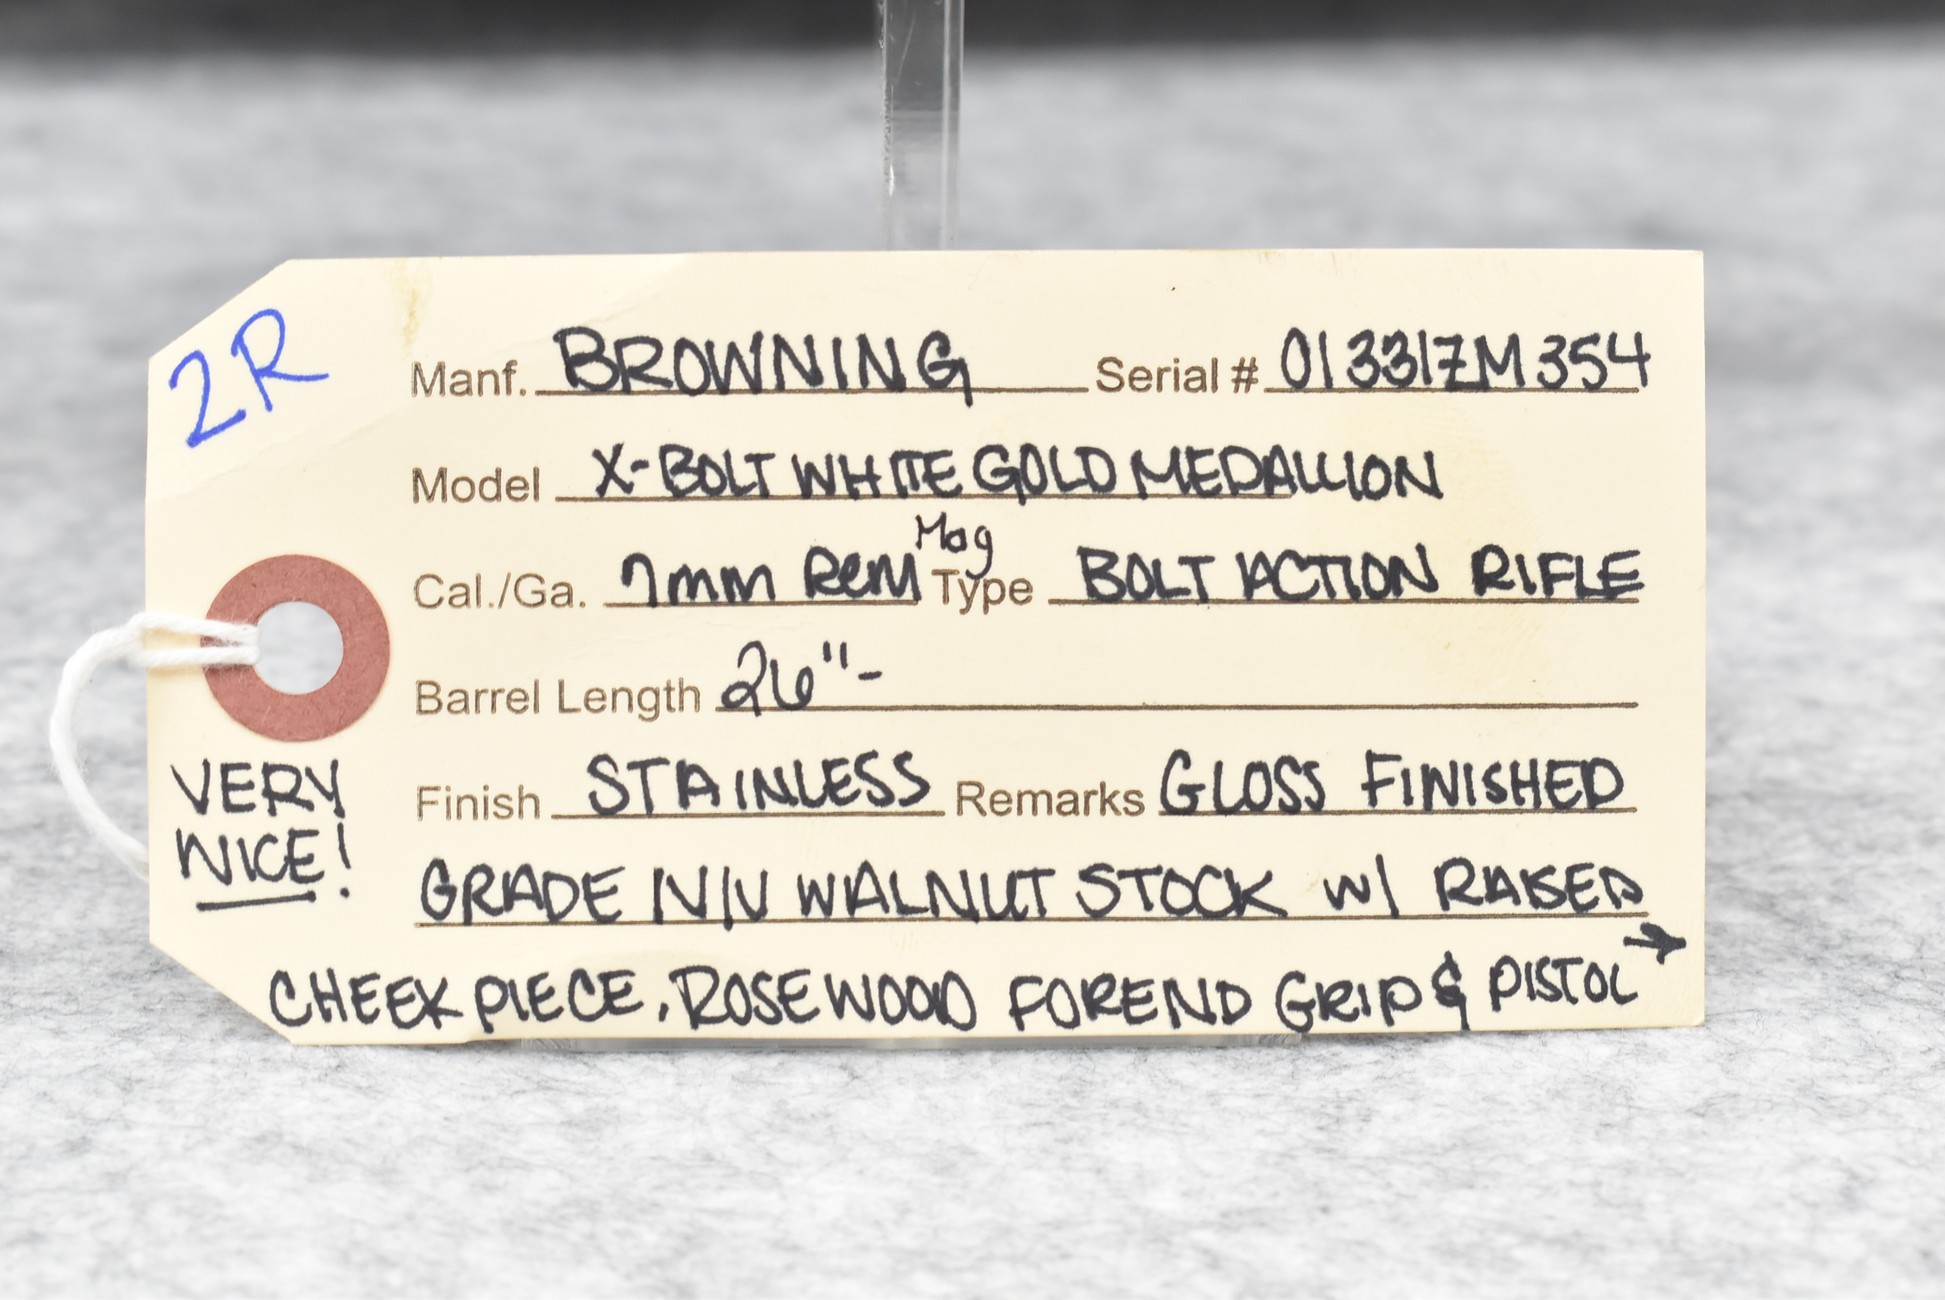 2R
Manf. BROWNING Serial # 01331ZM354
Model X-BOLT WHITE GOLD MEDALLION
Cal./Ga. 7mm Rem Mag Type BOLT ACTION RIFLE
Barrel Length 26"-
Finish STAINLESS Remarks GLOSS FINISHED
GRADE IV/V WALNUT STOCK W/ RAISED
CHEEK PIECE, ROSEWOOD FOREND GRIP & PISTOL →
VERY
NICE!